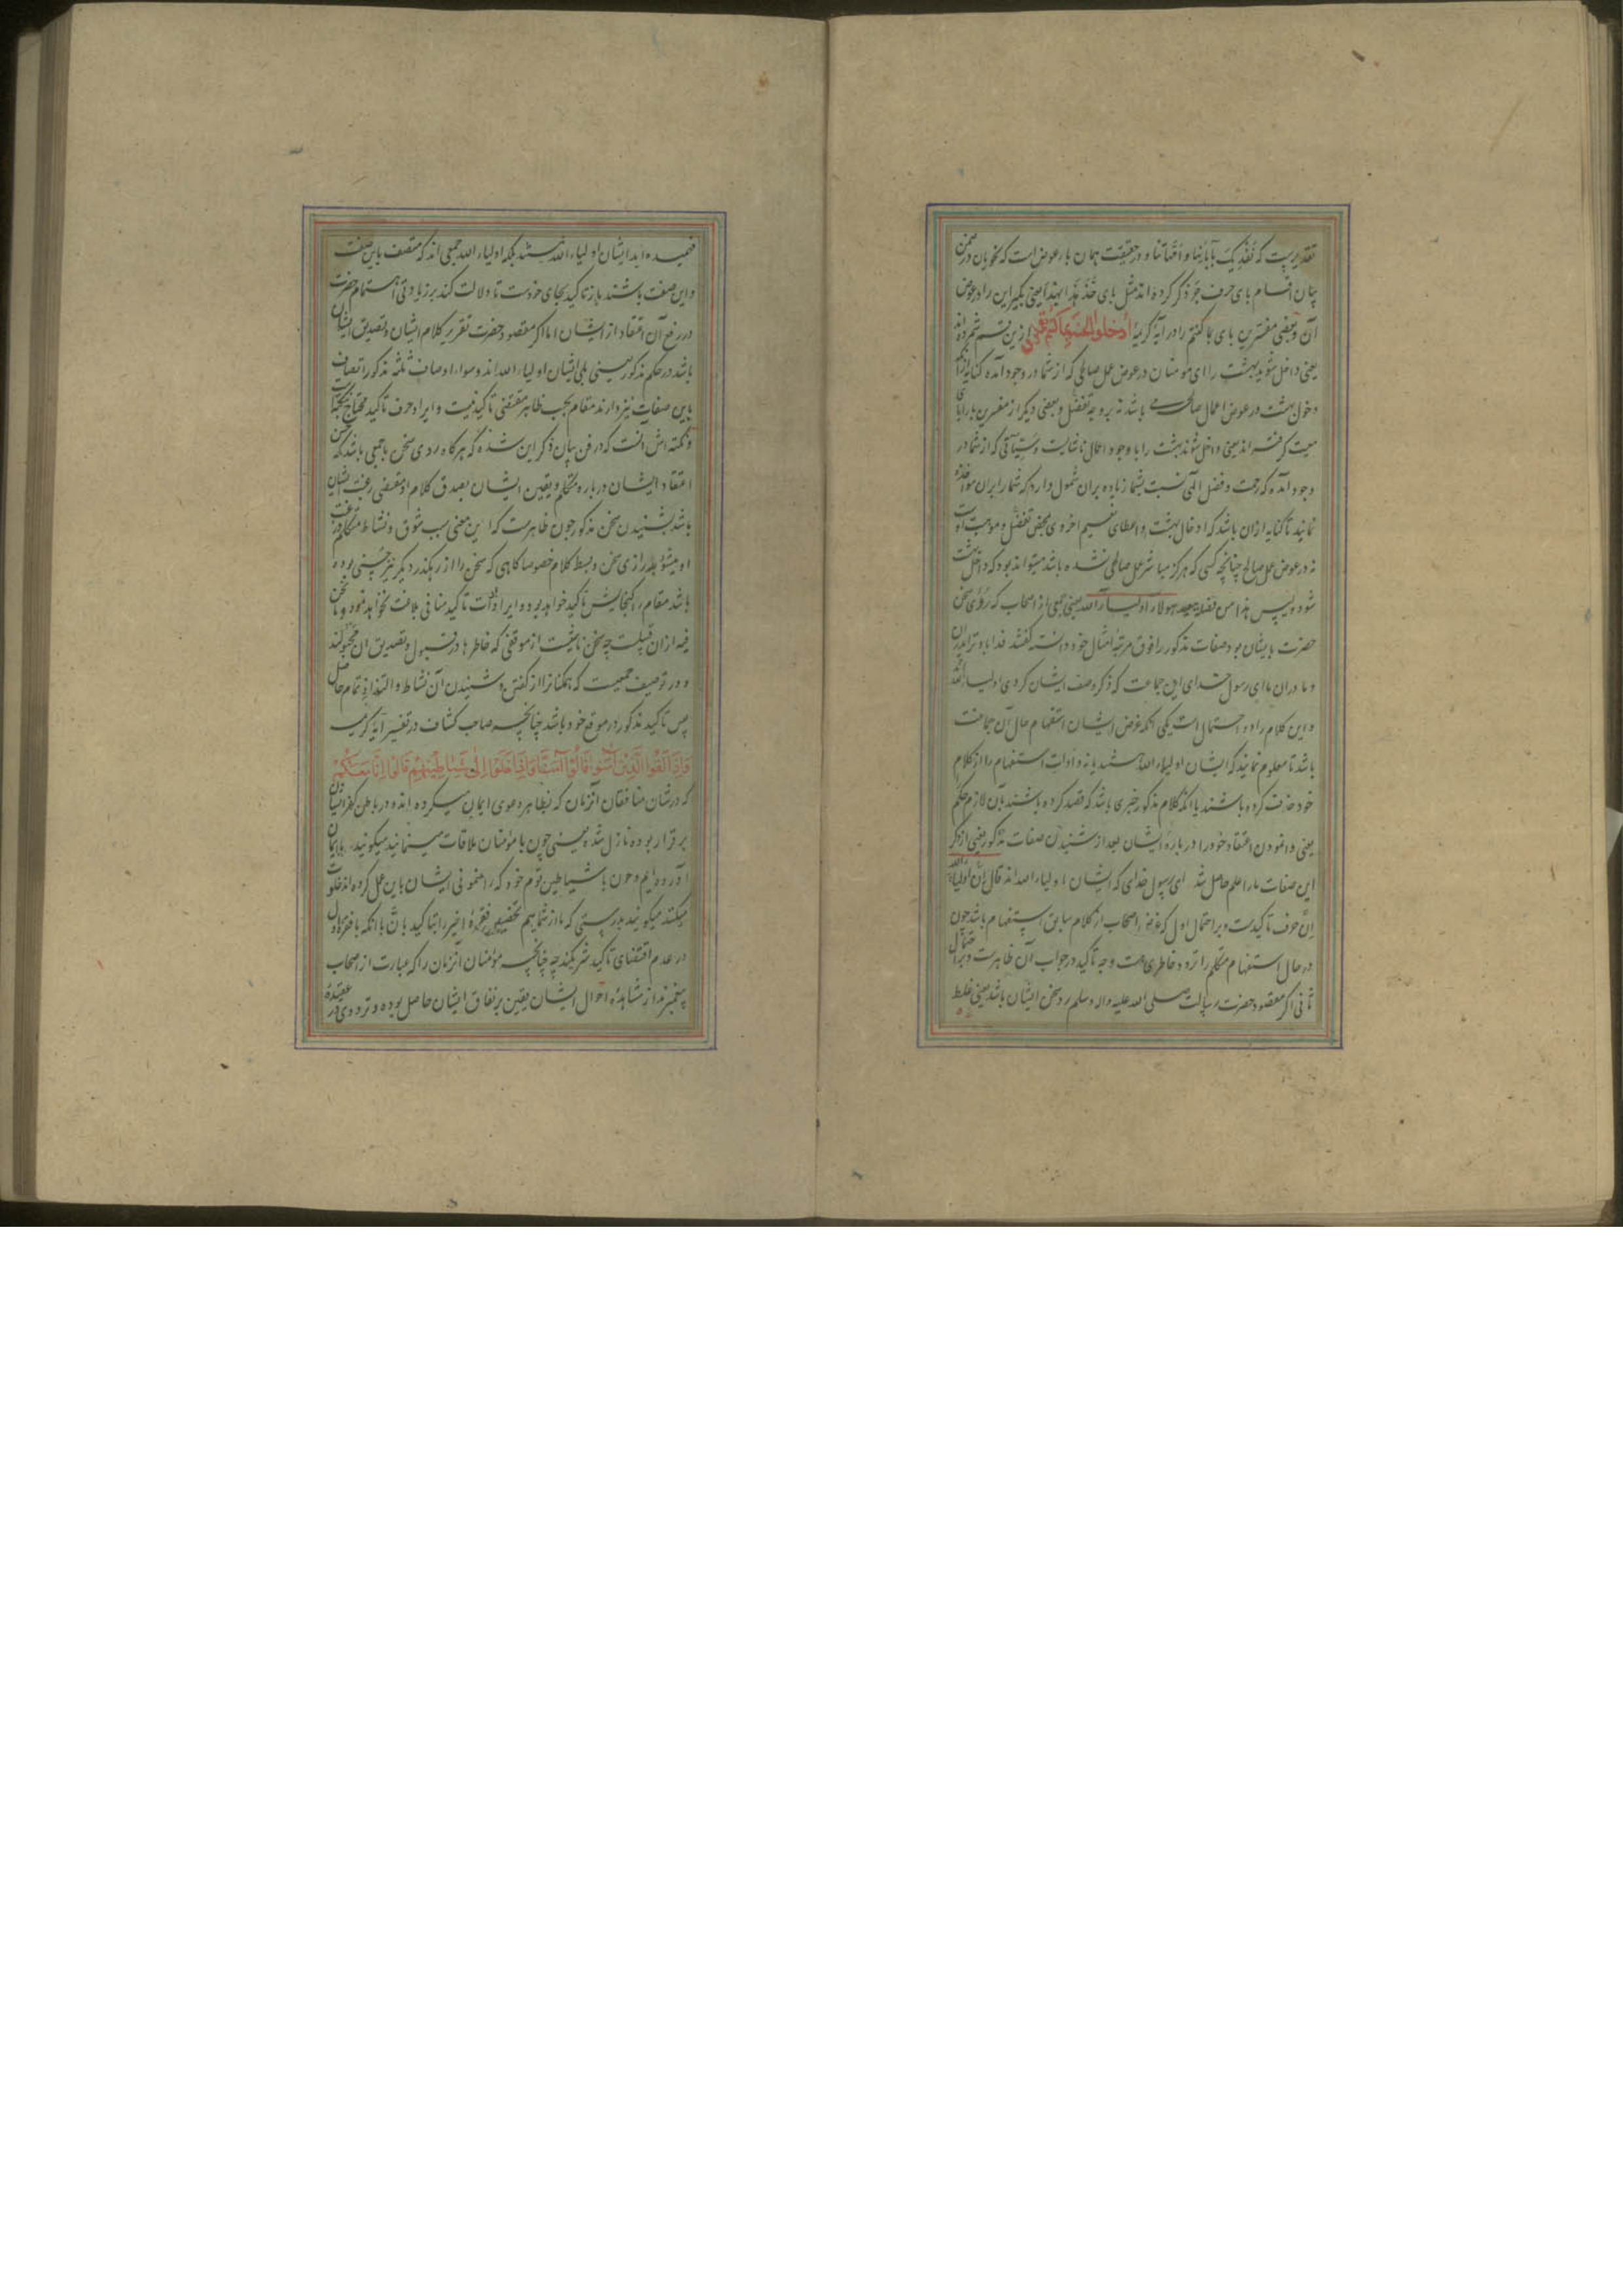 تقدیریست که نفدیک بآبائنا و امهاتنا و در حقیقت همان با عوض است که نحویان در ضمن
بیان اقسام بای حرف جر ذکر کرده اند مثل بای خذ هذا بهذا یعنی بگیر این را در عوض
آن و بعضی مفسرین بای بما کنتم را در آیه کریمه ادخلوا الجنة بما کنتم تعملون ازین قسم شمرده اند
یعنی داخل شوید بهشت را ای مومنان در عوض عمل صالحی که از شما در وجود آمده کنایه از آنکه
دخول بهشت در عوض اعمال صالحه می باشد نه بر وجه تفضل و بعضی دیگر از مفسرین با را بای
معیت گرفته اند یعنی داخل شوند بهشت را با وجود اعمال ناشایست و سیئاتی که از شما در
وجود آمده که رحمت و فضل الهی نسبت بشما زیاده بران شمول دارد که شما را بران مواخذه
نمایند تا کنایه ازان باشد که ادخال بهشت و اعطای نعیم اخروی محض تفضل و موهبت اوست
نه در عوض عمل صالح چنانچه کسی که هرگز مباشر عمل صالحی نشده باشد میتواند بود که داخل بهشت
شود و لیس هذا من فضله ببعید هولاء اولیاء الله یعنی جمعی از اصحاب که روی سخن
حضرت بایشان بود صفات مذکور را فوق مرتبه امثال خود دانسته گفتند فدا باد ترا پدران
و مادران ما ای رسول خدای این جماعت که ذکر وصف ایشان کردی اولیاء الله اند
و این کلام را دو احتمال است یکی آنکه غرض ایشان استفهام حال آن جماعت
باشد تا معلوم نمایند که ایشان اولیاء الله هستند یا نه و ادات استفهام را از کلام
خود حذف کرده باشند یا آنکه کلام مذکور خبری باشد که قصد کرده باشند بآن لازم حکم
یعنی وانمودن اعتقاد خود را در باره ایشان بعد از شنیدن صفات مذکور یعنی از ذکر
این صفات ما را علم حاصل شد ای رسول خدای که ایشان اولیاء الله اند قال ان اولیاء الله
ان حرف تاکیدست و بر احتمال اول که غرض اصحاب از کلام سابق استفهام باشد چون
در حال استفهام متکلم را تردد خاطری هست وجه تاکید در جواب آن ظاهرست و بر احتمال
ثانی اگر مقصود حضرت رسالت صلی الله علیه و اله وسلم رد سخن ایشان باشد یعنی غلط
فهمیده اید ایشان اولیاء الله نیستند بلکه اولیاء الله جمعی اند که متصف باین صفت
و این صفت باشند باز تاکید بجای خودست تا دلالت کند بر زیادتی اهتمام حضرت
در رفع آن اعتقاد از ایشان اما اگر مقصود حضرت تقریر کلام ایشان و تصدیق ایشان
باشد در حکم مذکور یعنی بلی ایشان اولیاء الله اند و سواء اوصاف ثلثه مذکور اتصاف
باین صفات نیز دارند مقام بحسب ظاهر مقتضی تاکید نیست و ایراد حرف تاکید محتاج بنکته است
و نکته اش آنست که در فن بیان ذکر این شده که هر گاه روی سخن با جمعی باشد که حسن
اعتقاد ایشان در باره متکلم و یقین ایشان بصدق کلام او مقتضی رغبت ایشان
باشد بشنیدن سخن مذکور چون ظاهرست که این معنی سبب شوق و نشاط متکلم و رغبت
او میشود بدرازی سخن و بسط کلام خصوصا گاهی که سخن را از رهگذر دیگر نیز حسنی بوده
باشد مقام را گنجایش تاکید خواهد بود و ایراد ادات تاکید منافی بلاغت نخواهد نمود و ما نحن
فیه ازان قبیلست چه سخن ناشیست از موقفی که خاطرها در قبول و تصدیق ان مجبولند
و در توصیف جمعیست که همگنانرا از گفتن و شنیدن آن نشاط و التذاذ تمام حاصل
پس تاکید مذکور در موقع خود باشد چنانچه صاحب کشاف در تفسیر آیه کریمه
وَاِذَا لَقُوا الَّذِينَ آمَنُوا قَالُوا آمَنَّا وَاِذَا خَلَوْا اِلٰى شَيَاطِينِهِمْ قَالُوا اِنَّا مَعَكُمْ
که در شان منافقان آنزمان که بظاهر دعوی ایمان میکرده اند و در باطن کفر ایشان
بر قرار بوده نازل شده یعنی چون با مؤمنان ملاقات مینمایند میگویند ما ایمان
آورده ایم و چون با شیاطین قوم خود که رهنمونی ایشان باین عمل کرده اند خلوت
میکنند میگویند بدرستی که ما از شماییم تخصیص فقره اخیر را بتاکید بان با آنکه با فقره اول
در عدم اقتضای تاکید شریکند چه چنانچه مؤمنان آنزمان را که عبارت از اصحاب
پیغمبرند از مشاهده احوال ایشان یقین بر نفاق ایشان حاصل بوده و ترددی در عقیده